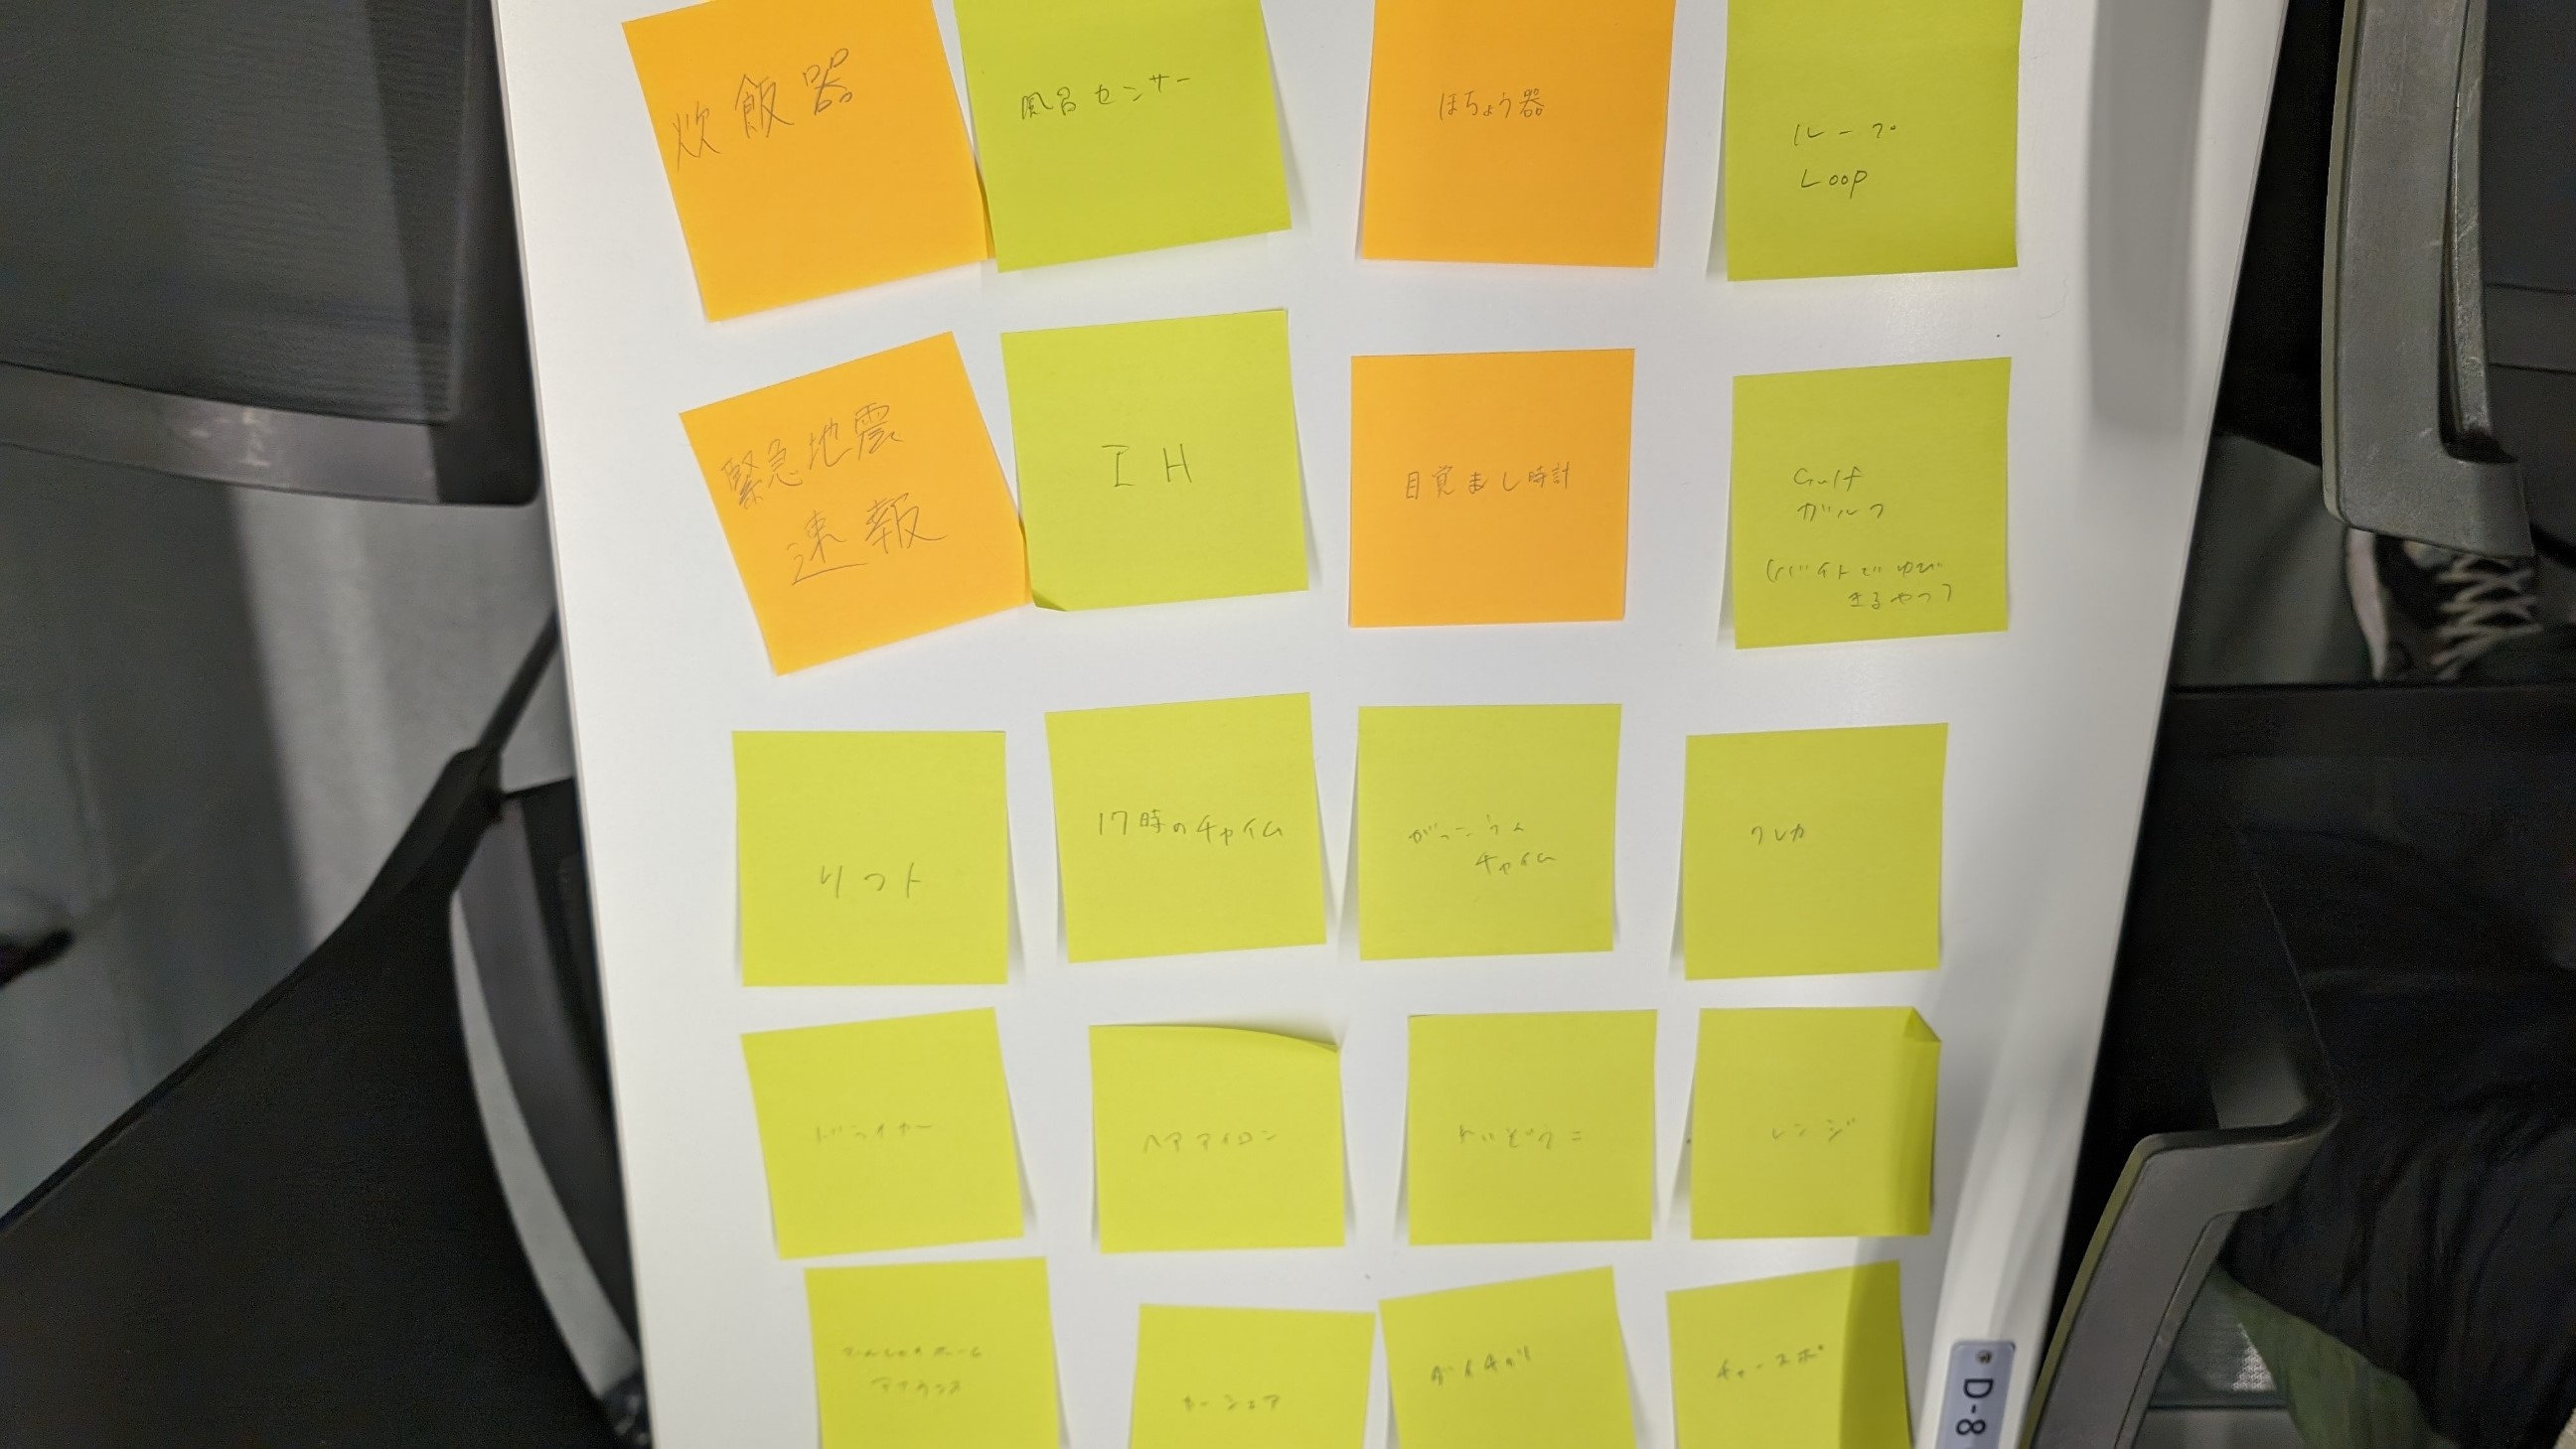 炊飯器
風呂センサー
ほちょう器
ループ
Loop
緊急地震
速報
IH
目覚まし時計
Gulf
ガルフ
(バイトでゆび
きるやつ)
リフト
17時のチャイム
がっこうの
チャイム
クレカ
ドライヤー
ヘアアイロン
れいぞうこ
レンジ
ホーム
アナウンス
カーシェア
ダイチャリ
チャースポ
D-8